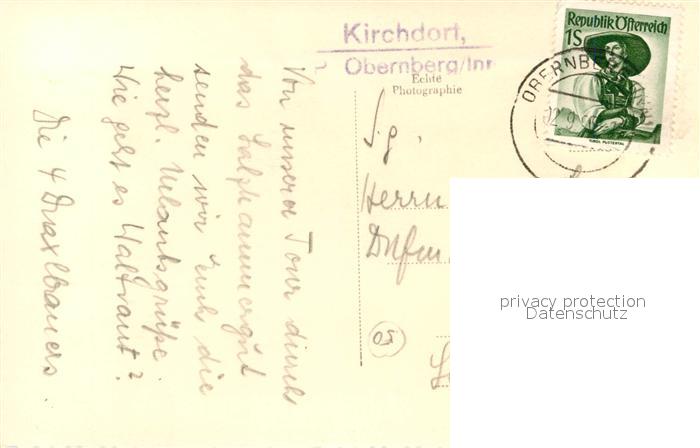 Kirchdorf,
Obernberg/Inn
Republik Österreich
1S
OBERNBERG
12.9.
TIROL PUSTERTAL
Echte
Photographie
Von unserer Tour durch
das Salzkammergut
senden wir Euch die
herzl. Urlaubsgrüße.
Wie geht es Waltraut?
Die 4 Draxlbauers.
S.g.
Herrn
privacy protection
Datenschutz